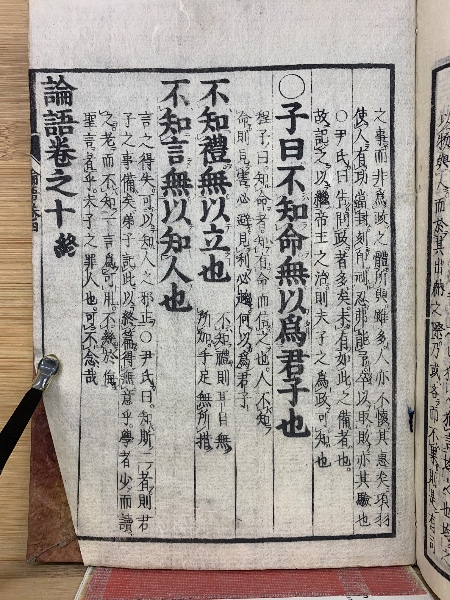 以物與人而於其出納之際乃或吝而不果則是有司
之事而非爲政之體所與雖多人亦不懷其惠矣項羽
使人有功當封刻印刓忍弗能予卒以取敗亦其驗也
〇尹氏曰告問政者多矣未有如此之備者也
故記之以繼帝王之治則夫子之爲政可知也
〇子曰不知命無以爲君子也
程子曰知命者知有命而信之也人不知
命則見害必避見利必趨何以爲君子
不知禮無以立也
不知禮則耳目無
所加手足無所措
不知言無以知人也
言之得失可以知人之邪正〇尹氏曰知斯三者則君
子之事備矣弟子記此以終篇得無意乎學者少而讀
之老而不知一言爲可用不幾於侮
聖言者乎夫子之罪人也可不念哉
論語卷之十終